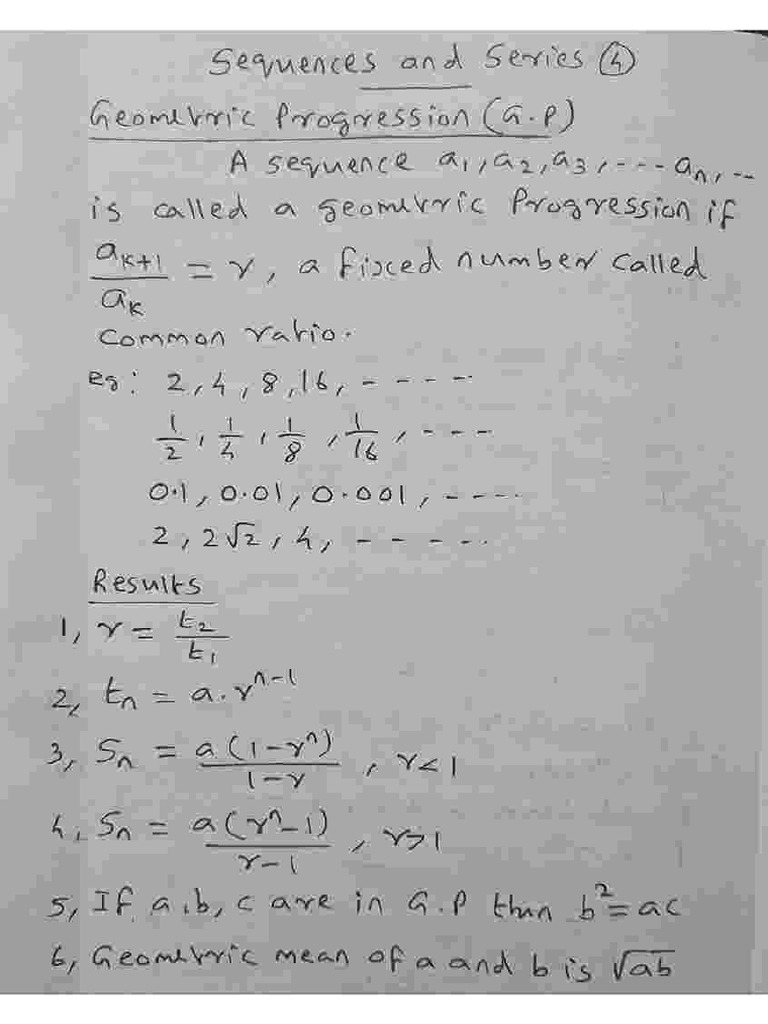 Sequences and Series ④
Geometric Progression (G.P)
A sequence a₁, a₂, a₃, ---- aₙ, --
is called a geometric Progression if
aₖ₊₁/aₖ = r, a fixed number called
common ratio.
eg: 2, 4, 8, 16, - - - -
1/2, 1/4, 1/8, 1/16, - - -
0.1, 0.01, 0.001, - - - -
2, 2√2, 4, - - - - -
Results
1, r = t₂/t₁
2, tₙ = a.rⁿ⁻¹
3, Sₙ = a(1-rⁿ)/1-r, r<1
4, Sₙ = a(rⁿ-1)/r-1, r>1
5, If a, b, c are in G.P then b² = ac
6, Geometric mean of a and b is √ab